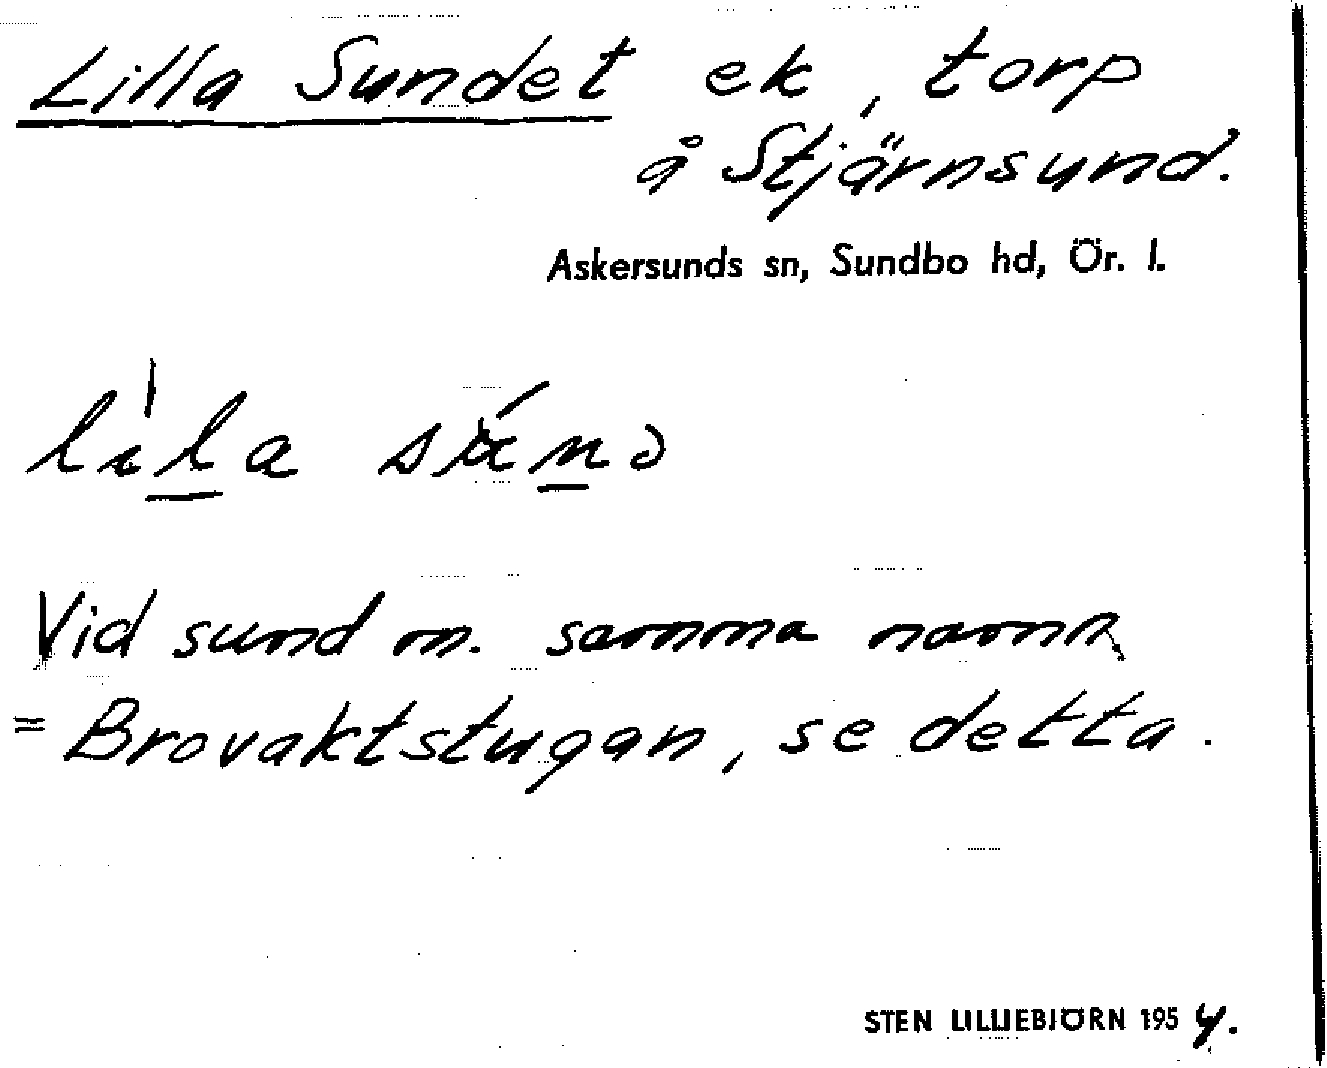 Lilla Sundet ek, torp
å Stjärnsund.
Askersunds sn, Sundbo hd, Ör. l.
Vid sund m. samma namn
= Brovaktstugan, se detta.
STEN LILLIEBJÖRN 1954.